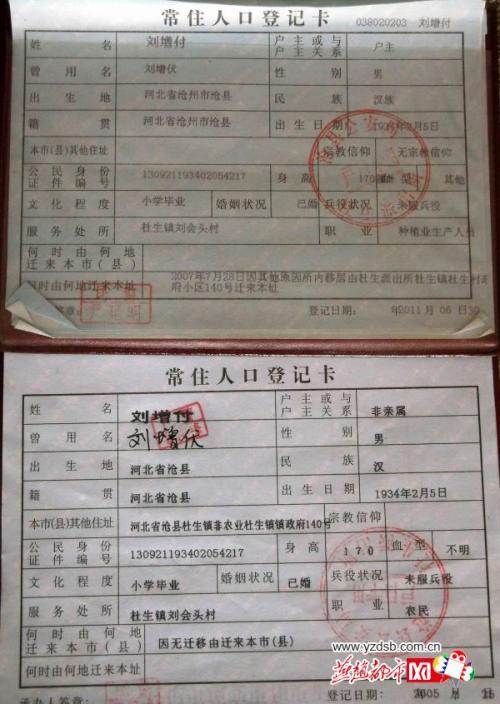 常住人口登记卡
038020203 刘增付
姓名 刘增付 户主或与户主关系 户主
曾用名 刘增伏 性别 男
出生地 河北省沧州市沧县 民族 汉族
籍贯 河北省沧州市沧县 出生日期 1934年2月5日
本市(县)其他住址 宗教信仰 无宗教信仰
公民身份证件编号 130921193402054217 身高 170 血型 其他
文化程度 小学毕业 婚姻状况 已婚 兵役状况 未服兵役
服务处所 杜生镇刘会头村 职业 种植业生产人员
何时由何地迁来本市(县)
何时由何地迁来本址 2007年7月28日因其他原因所内移居由杜生派出所杜生镇杜生村政府小区140号迁来本址
登记日期: 2011年06月30
常住人口登记卡
姓名 刘增付 户主或与户主关系 非亲属
曾用名 刘增伏 性别 男
出生地 河北省沧县 民族 汉
籍贯 河北省沧县 出生日期 1934年2月5日
本市(县)其他住址 河北省沧县杜生镇非农业杜生镇镇政府140号 宗教信仰
公民身份证件编号 130921193402054217 身高 170 血型 不明
文化程度 小学毕业 婚姻状况 已婚 兵役状况 未服兵役
服务处所 杜生镇刘会头村 职业 农民
何时由何地迁来本市(县) 因无迁移由迁来本市(县)
何时由何地迁来本址
承办人签章: 登记日期: 2005年
www.yzdsb.com.cn
燕赵都市网